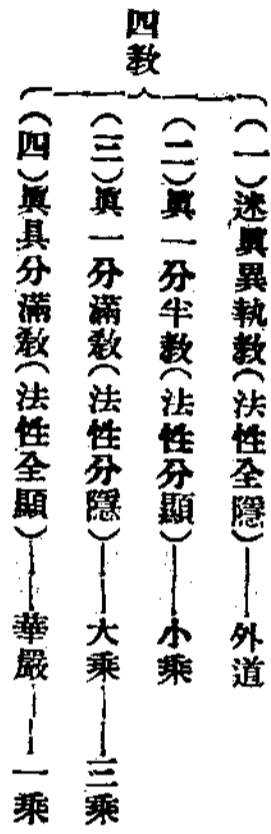 四教
(一)迷眞異執教(法性全隱)——外道
(二)眞一分半教(法性分顯)——小乘
(三)眞一分滿教(法性分隱)——大乘——三乘
(四)眞具分滿教(法性全顯)——華嚴——一乘